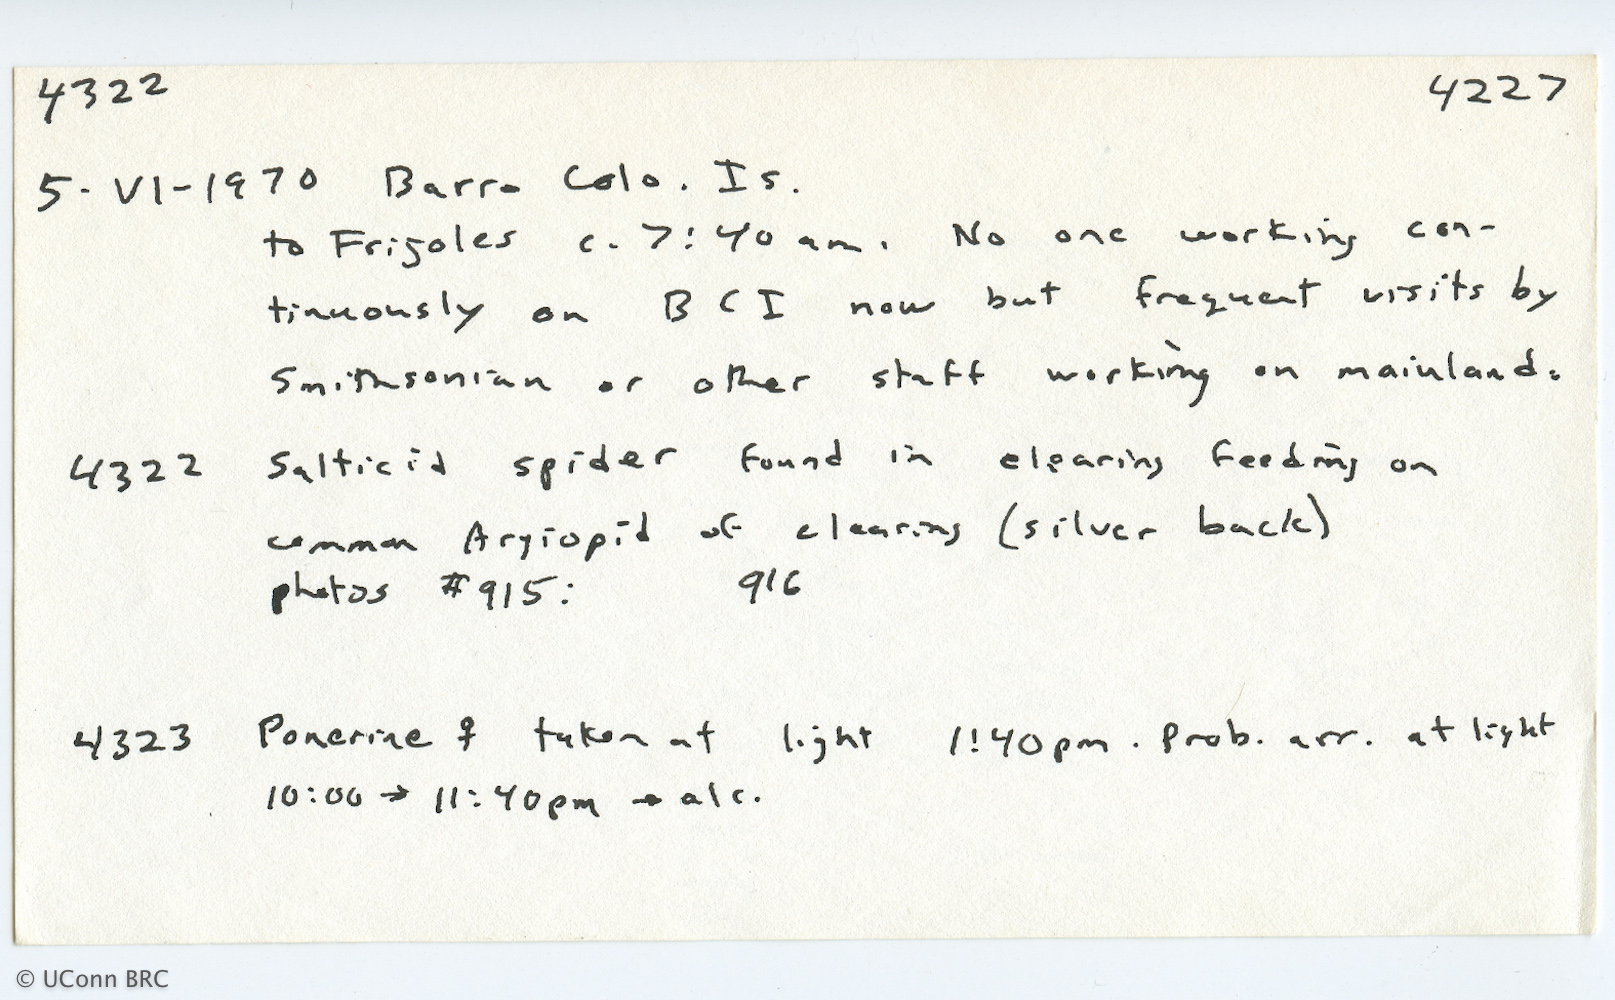 4322 4227
5-VI-1970 Barro Colo. Is.
to Frijoles c. 7:40 am. No one working con-
tinuously on BCI now but frequent visits by
Smithsonian or other staff working on mainland.
4322 Salticid spider found in clearing feeding on
common Argiopid of clearing (silver back)
photos #915: 916
4323 Ponerine ♀ taken at light 1:40pm. Prob. arr. at light
10:00 → 11:40pm → alc.
© UConn BRC